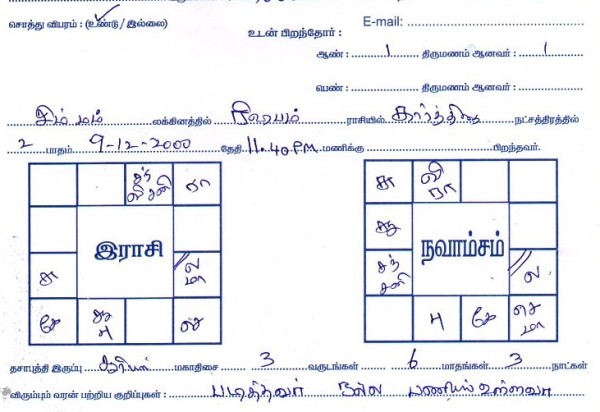 சொத்து விபரம் : (உண்டு / இல்லை)
E-mail:
உடன் பிறந்தோர் :
ஆண் : 1 திருமணம் ஆனவர் : 1
பெண் : திருமணம் ஆனவர் :
சிம்மம் லக்கினத்தில் ரிஷபம் ராசியில் கார்த்திகை நட்சத்திரத்தில்
2 பாதம் 9-12-2000 தேதி 11.40 PM மணிக்கு பிறந்தவர்.
சந் சனி ரா
இராசி
ல மா
கே
நவாம்சம்
ல
சந் சனி
கே
தசாபுத்தி இருப்பு சூரியன் மகாதிசை 3 வருடங்கள் 6 மாதங்கள் 3 நாட்கள்
விரும்பும் வரன் பற்றிய குறிப்புகள் : படித்தவர் நல்ல பணியில் உள்ளவர்